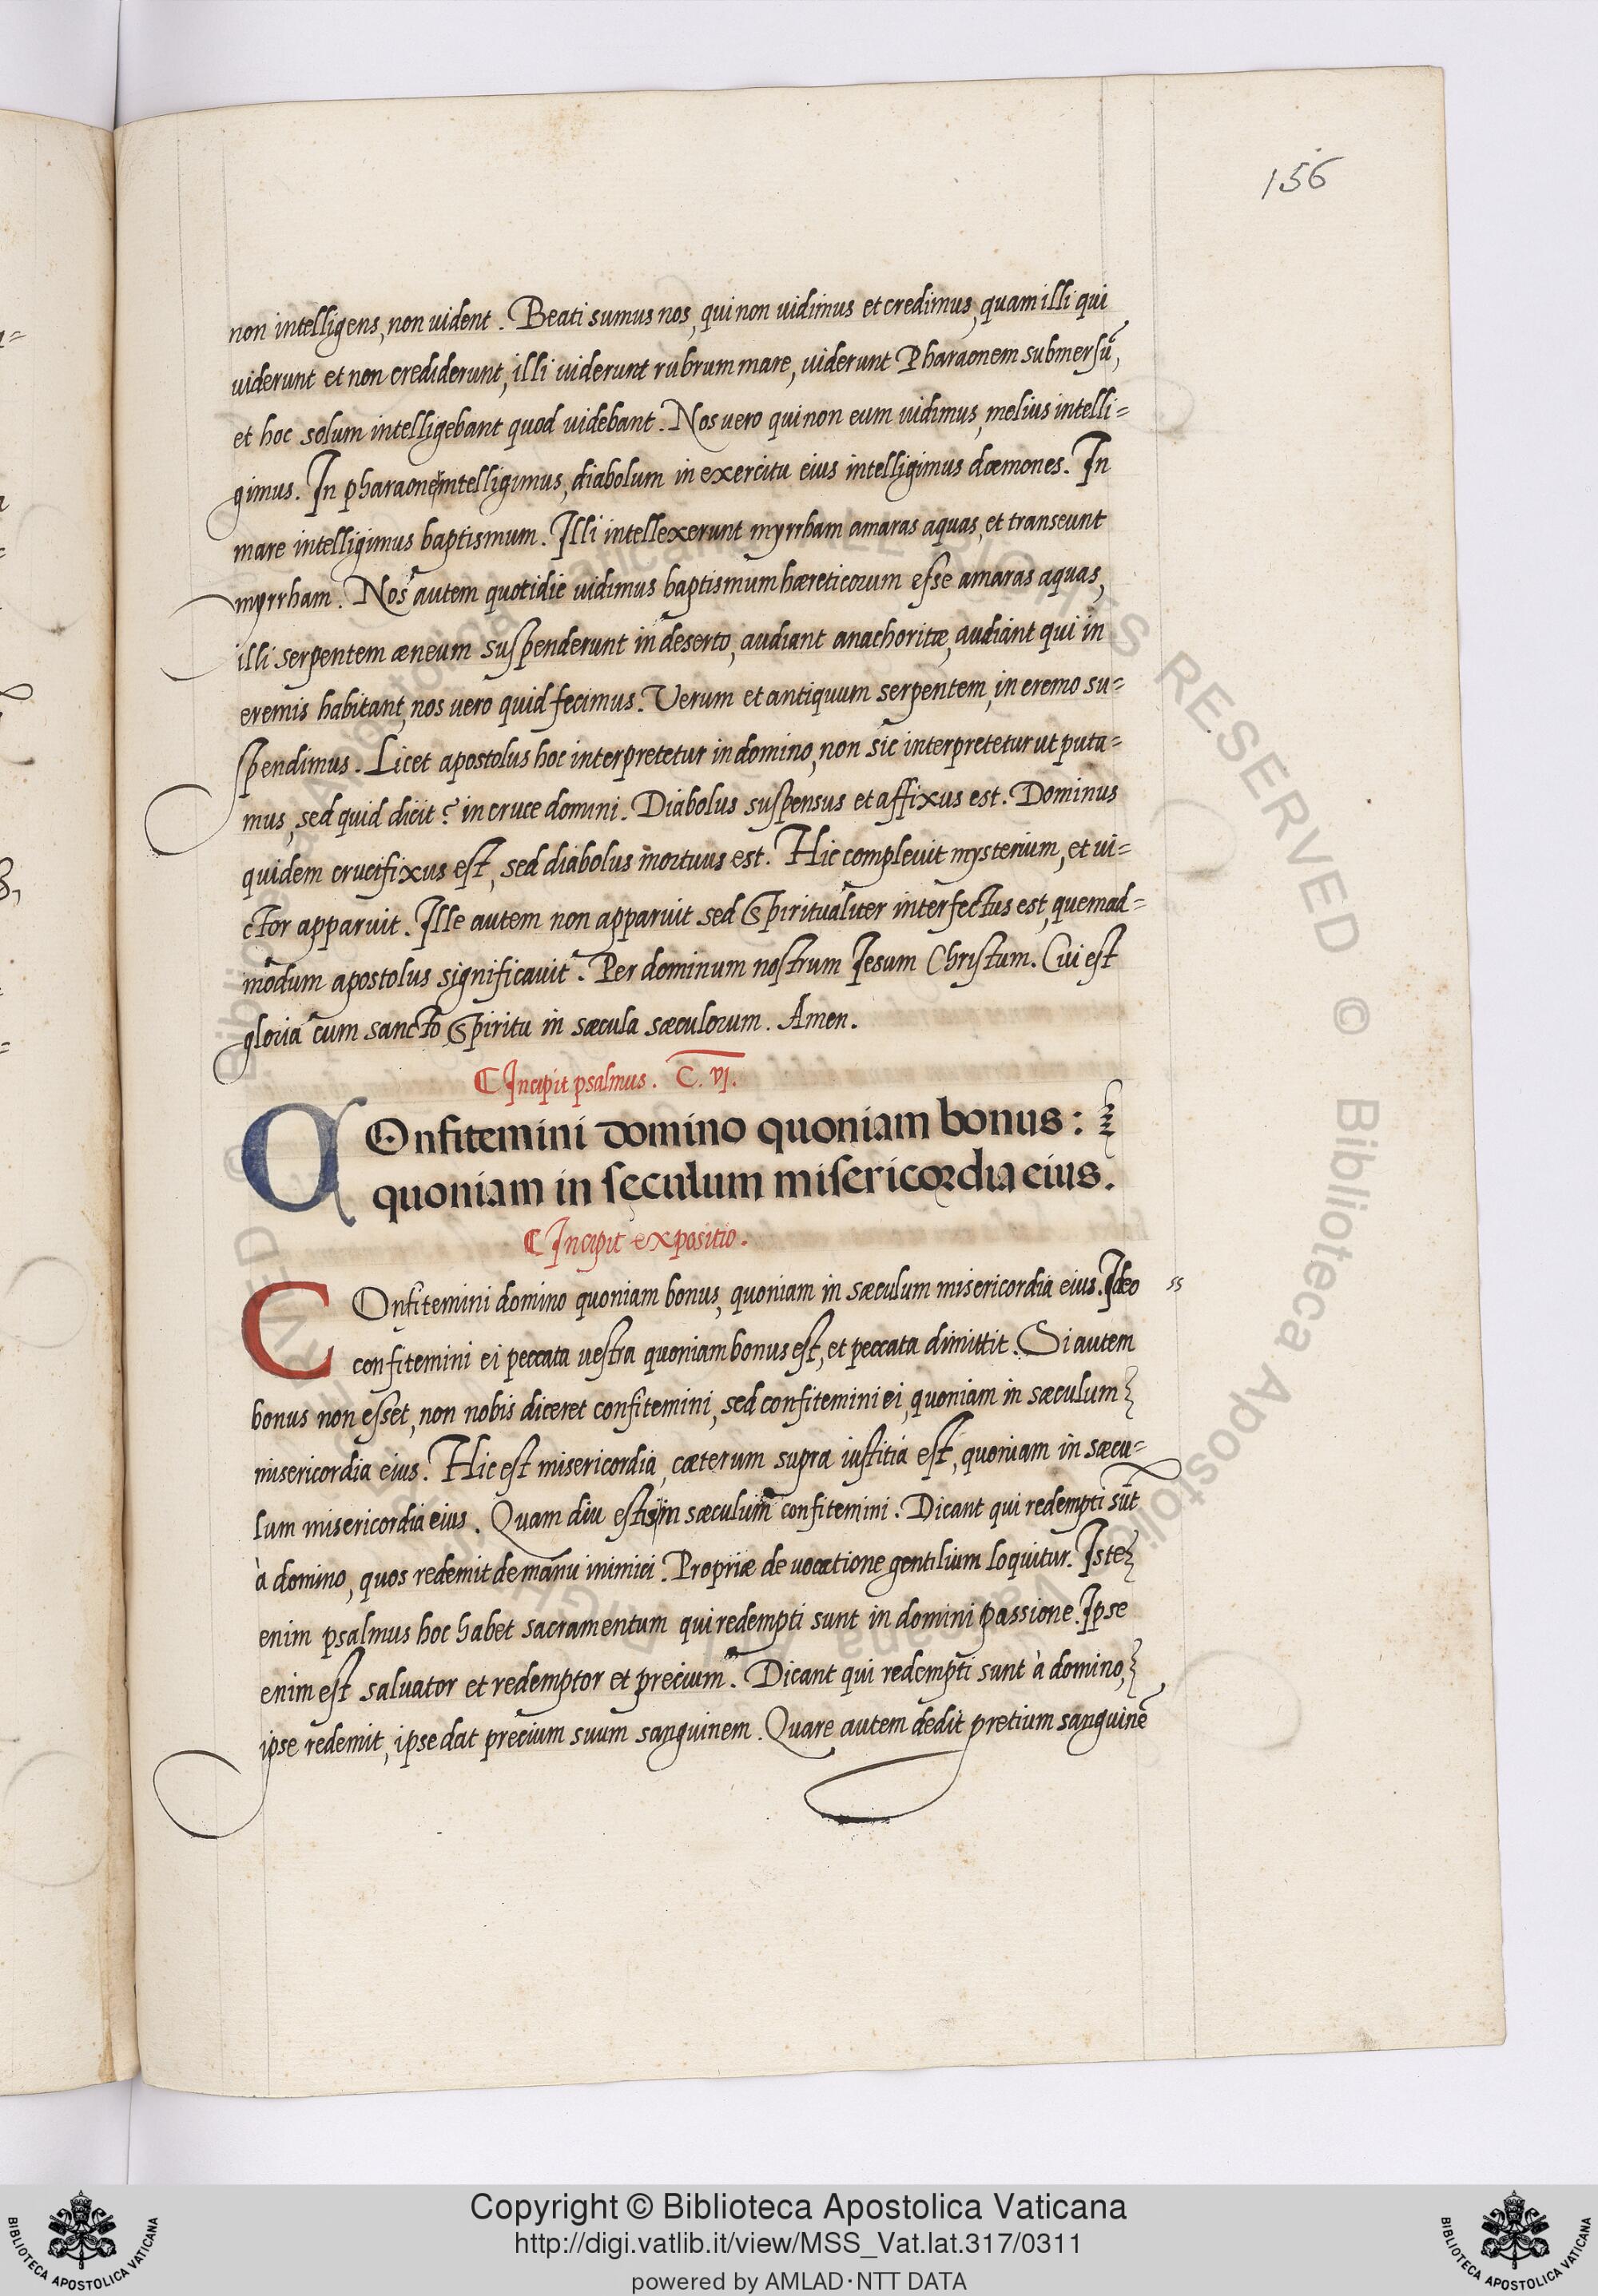 156
non intelligens, non uident. Beati sumus nos, qui non uidimus et credimus, quam illi qui
uiderunt et non crediderunt, illi uiderunt rubrum mare, uiderunt Pharaonem submersū,
et hoc solum intelligebant quod uidebant. Nos uero qui non eum uidimus, melius intelli=
gimus. In pharaone intelligimus, diabolum in exercitu eius intelligimus dæmones. In
mare intelligimus baptismum. Illi intellexerunt myrrham amaras aquas, et transeunt
myrrham. Nos autem quotidie uidimus baptismum hæreticorum esse amaras aquas,
illi serpentem æneum suspenderunt in deserto, audiant anachoritæ, audiant qui in
eremis habitant, nos uero quid fecimus. Verum et antiquum serpentem, in eremo su=
spendimus. Licet apostolus hoc interpretetur in domino, non sic interpretetur ut puta=
mus, sed quid dicit? in cruce domini. Diabolus suspensus et affixus est. Dominus
quidem crucifixus est, sed diabolus mortuus est. Hic compleuit mysterium, et ui=
ctor apparuit. Ille autem non apparuit sed Spiritualiter interfectus est, quemad=
modum apostolus significauit. Per dominum nostrum Iesum Christum. Cui est
gloria cum sancto Spiritu in sæcula sæculorum. Amen.
Incipit psalmus. C. VI.
COnfitemini domino quoniam bonus:
quoniam in sęculum misericordia eius.
Incipit expositio.
COnfitemini domino quoniam bonus, quoniam in sæculum misericordia eius. Ideo ss
confitemini ei peccata uestra quoniam bonus est, et peccata dimittit. Si autem
bonus non esset, non nobis diceret confitemini, sed confitemini ei, quoniam in sæculum
misericordia eius. Hic est misericordia, cæterum supra iustitia est, quoniam in sæcu=
lum misericordia eius. Quam diu estis in sæculum confitemini. Dicant qui redempti sūt
à domino, quos redemit de manu inimici. Propriæ de uocatione gentilium loquitur. Iste
enim psalmus hoc habet sacramentum qui redempti sunt in domini passione. Ipse
enim est saluator et redemptor et precium. Dicant qui redempti sunt à domino,
ipse redemit, ipse dat precium suum sanguinem. Quare autem dedit pretium sanguinē
Copyright © Biblioteca Apostolica Vaticana
http://digi.vatlib.it/view/MSS_Vat.lat.317/0311
powered by AMLAD·NTT DATA
BIBLIOTECA APOSTOLICA VATICANA
BIBLIOTECA APOSTOLICA VATICANA